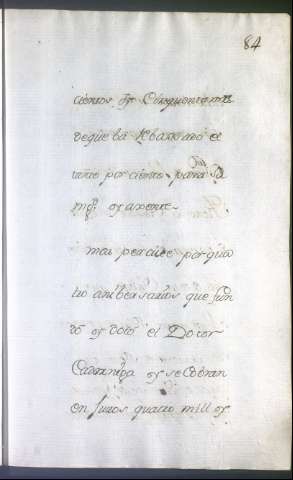 84
cientos y Cinquenta mrs
de que ba Rebaxado el
tanto por ciento para Su
mgd y axente
mas percive por qua
tro anibersarios que fun
do y doto el Dotor
y se Cobran
en Juros quatro mill y